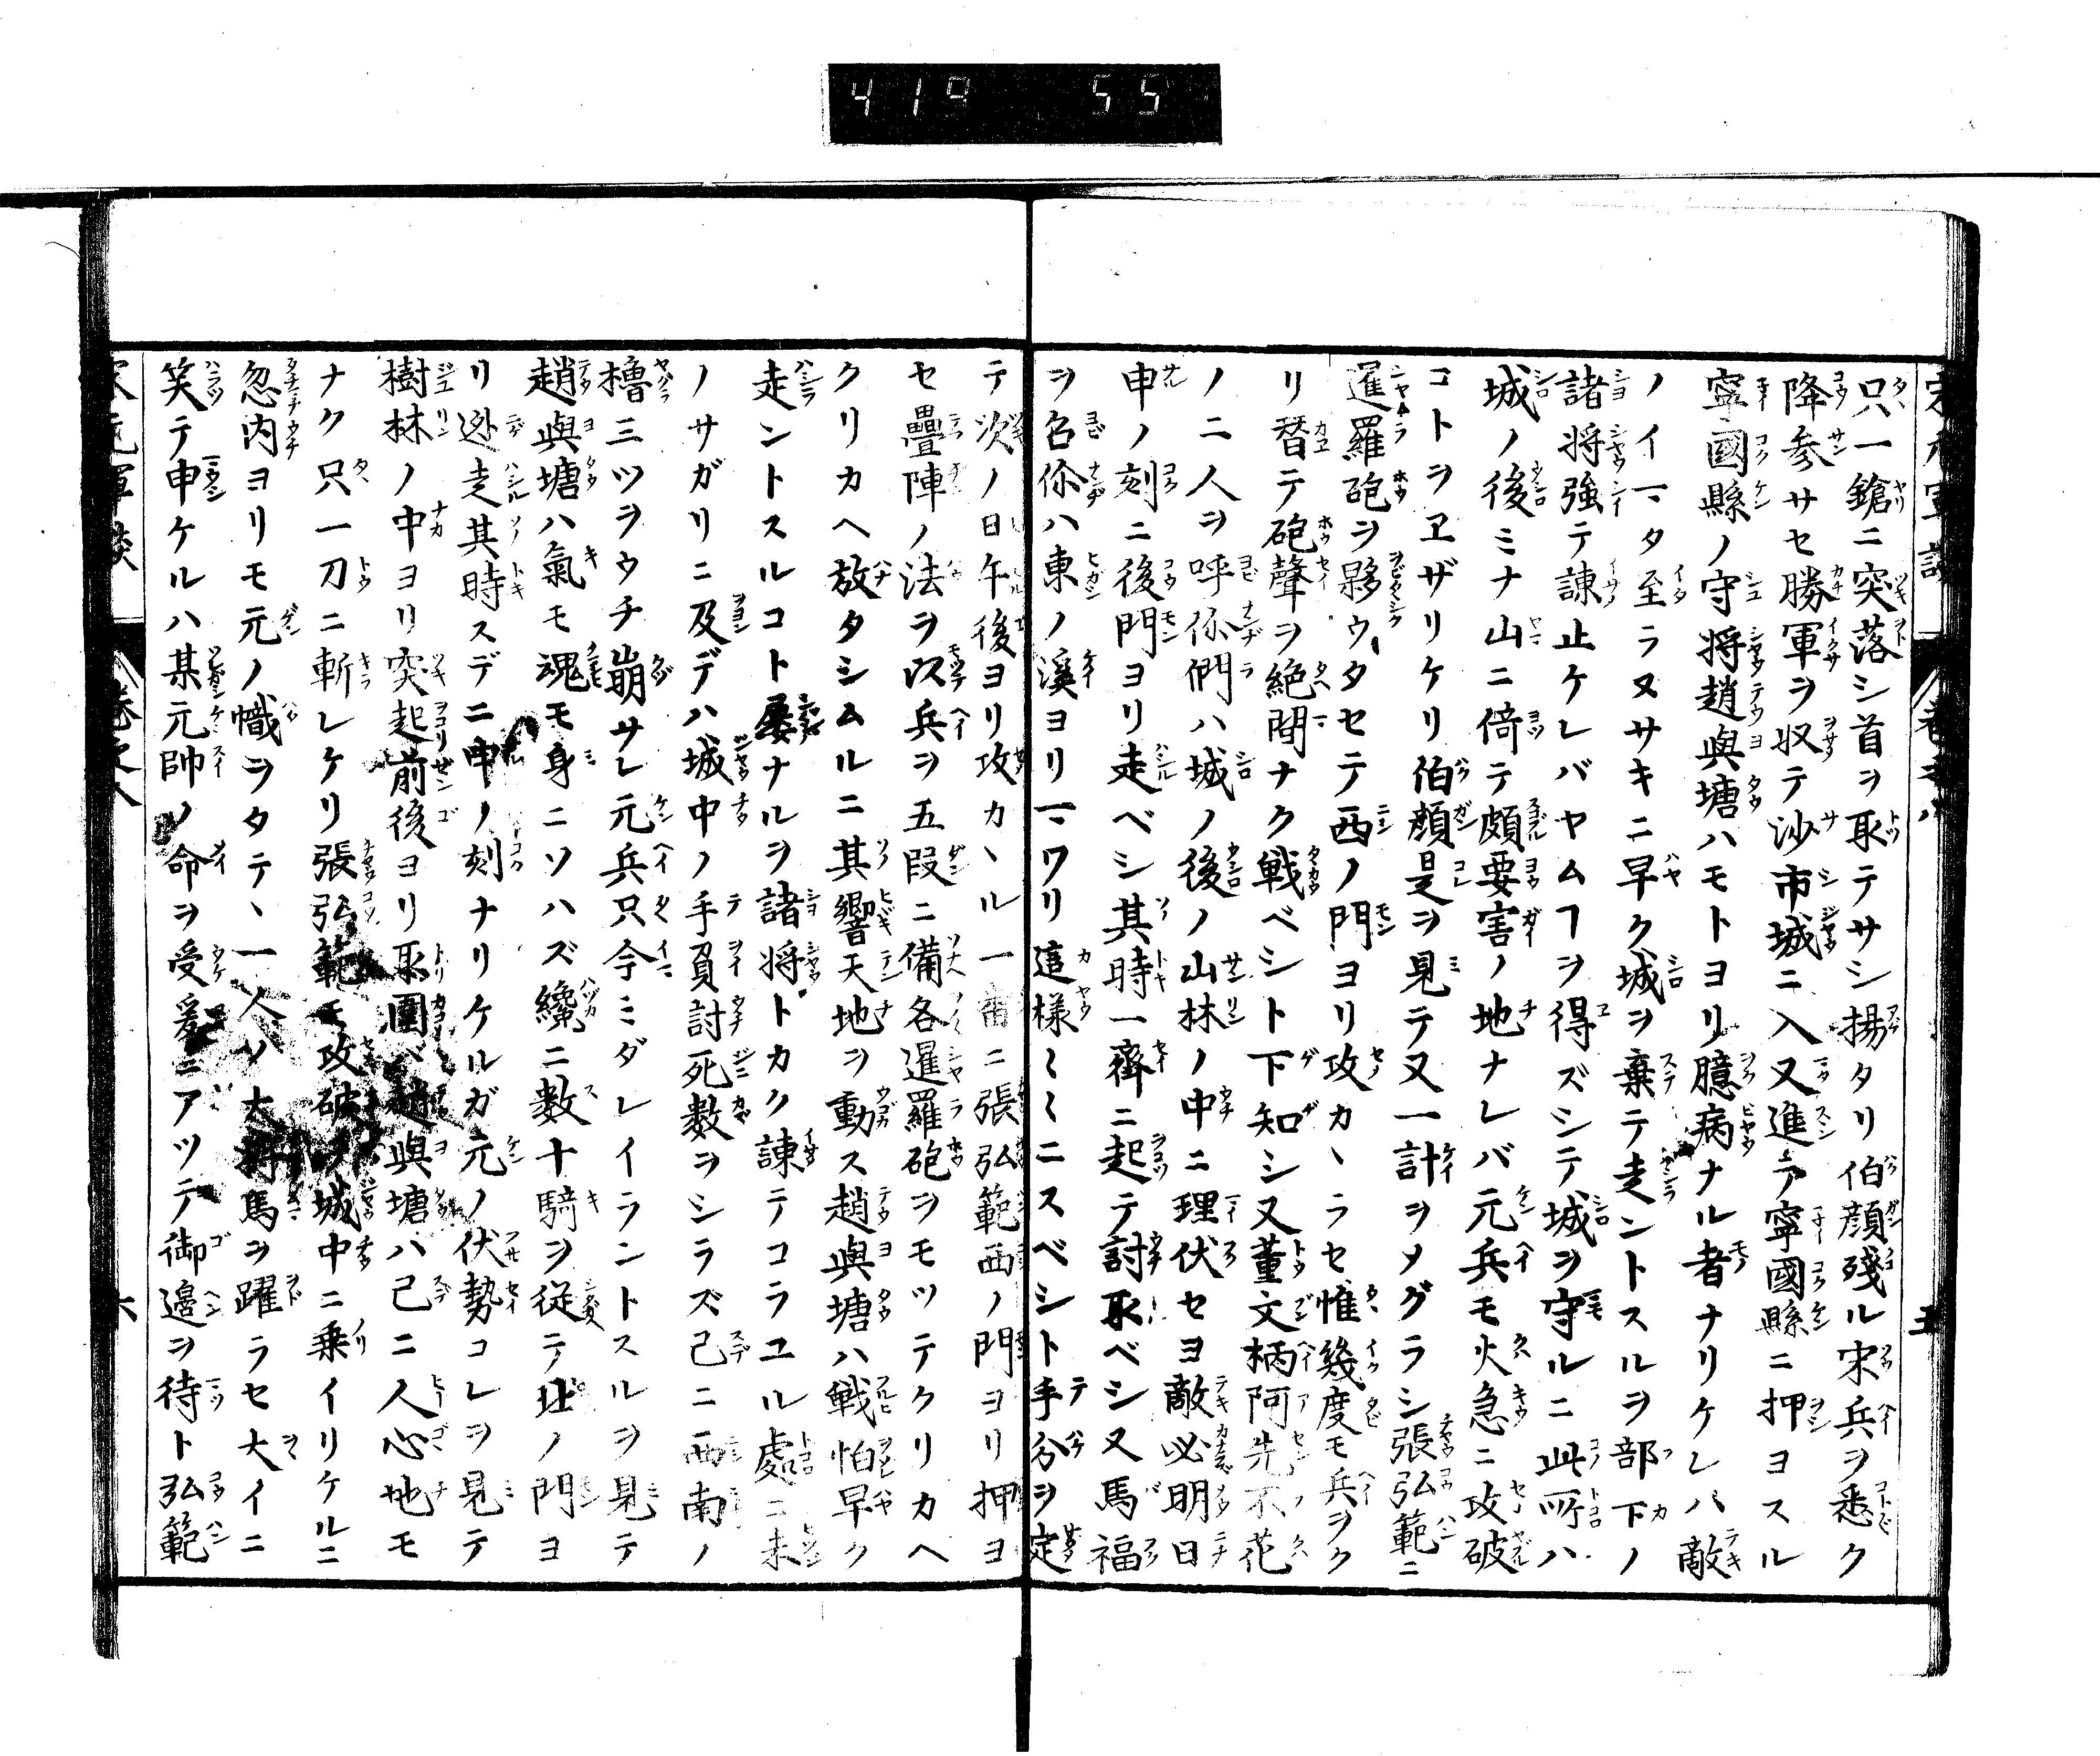 419 55
只一鎗ニ突落シ首ヲ取テサシ揚タリ伯顔殘ル宋兵ヲ悉ク
降参サセ勝軍ヲ収テ沙市城ニ入又進テ寧國縣ニ押ヨスル
寧國縣ノ守将趙與塘ハモトヨリ臆病ナル者ナリケレバ敵
ノイマタ至ラヌサキニ早ク城ヲ棄テ走ントスルヲ部下ノ
諸将強テ諌止ケレバヤムヿヲ得ズシテ城ヲ守ルニ此所ハ
城ノ後ミナ山ニ倚テ頗要害ノ地ナレバ元兵モ火急ニ攻破
コトヲヱザリケリ伯顔是ヲ見テ又一計ヲメグラシ張弘範ニ
暹羅砲ヲ夥ウタセテ西ノ門ヨリ攻カヽラセ惟幾度モ兵ヲク
リ替テ砲聲ヲ絶間ナク戦ベシト下知シ又董文柄阿先不花
ノ二人ヲ呼伱們ハ城ノ後ノ山林ノ中ニ理伏セヨ敵必明日
申ノ刻ニ後門ヨリ走ベシ其時一齊ニ起テ討取ベシ又馬福
ヲ召伱ハ東ノ溪ヨリマワリ這様〻〻ニスベシト手分ヲ定
テ次ノ日午後ヨリ攻カヽル一番ニ張弘範西ノ門ヨリ押ヨ
セ疊陣ノ法ヲ以兵ヲ五段ニ備各暹羅砲ヲモツテクリカヘ
クリカヘ放タシムルニ其響天地ヲ動ス趙與塘ハ戦怕早ク
走ントスルコト屡ナルヲ諸将トカク諌テコラユル處ニ未
ノサガリニ及デハ城中ノ手負討死数ヲシラズ已ニ西南ノ
櫓三ツヲウチ崩サレ元兵只今ミダレイラントスルヲ見テ
趙與塘ハ氣モ魂モ身ニソハズ纔ニ数十騎ヲ従テ北ノ門ヨ
リ迯走其時スデニ申ノ刻ナリケルガ元ノ伏勢コレヲ見テ
樹林ノ中ヨリ突起前後ヨリ取圍バ趙與塘ハ已ニ人心地モ
ナク只一刀ニ斬レケリ張弘範モ攻破テ城中ニ乗イリケルニ
忽内ヨリモ元ノ幟ヲタテヽ一人ノ大将馬ヲ躍ラセ大イニ
笑テ申ケルハ某元帥ノ命ヲ受爰ニアツテ御邉ヲ待ト弘範
六